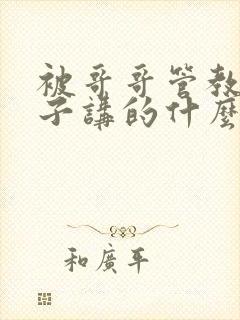 被哥哥管教
子講的什麼
和廣平